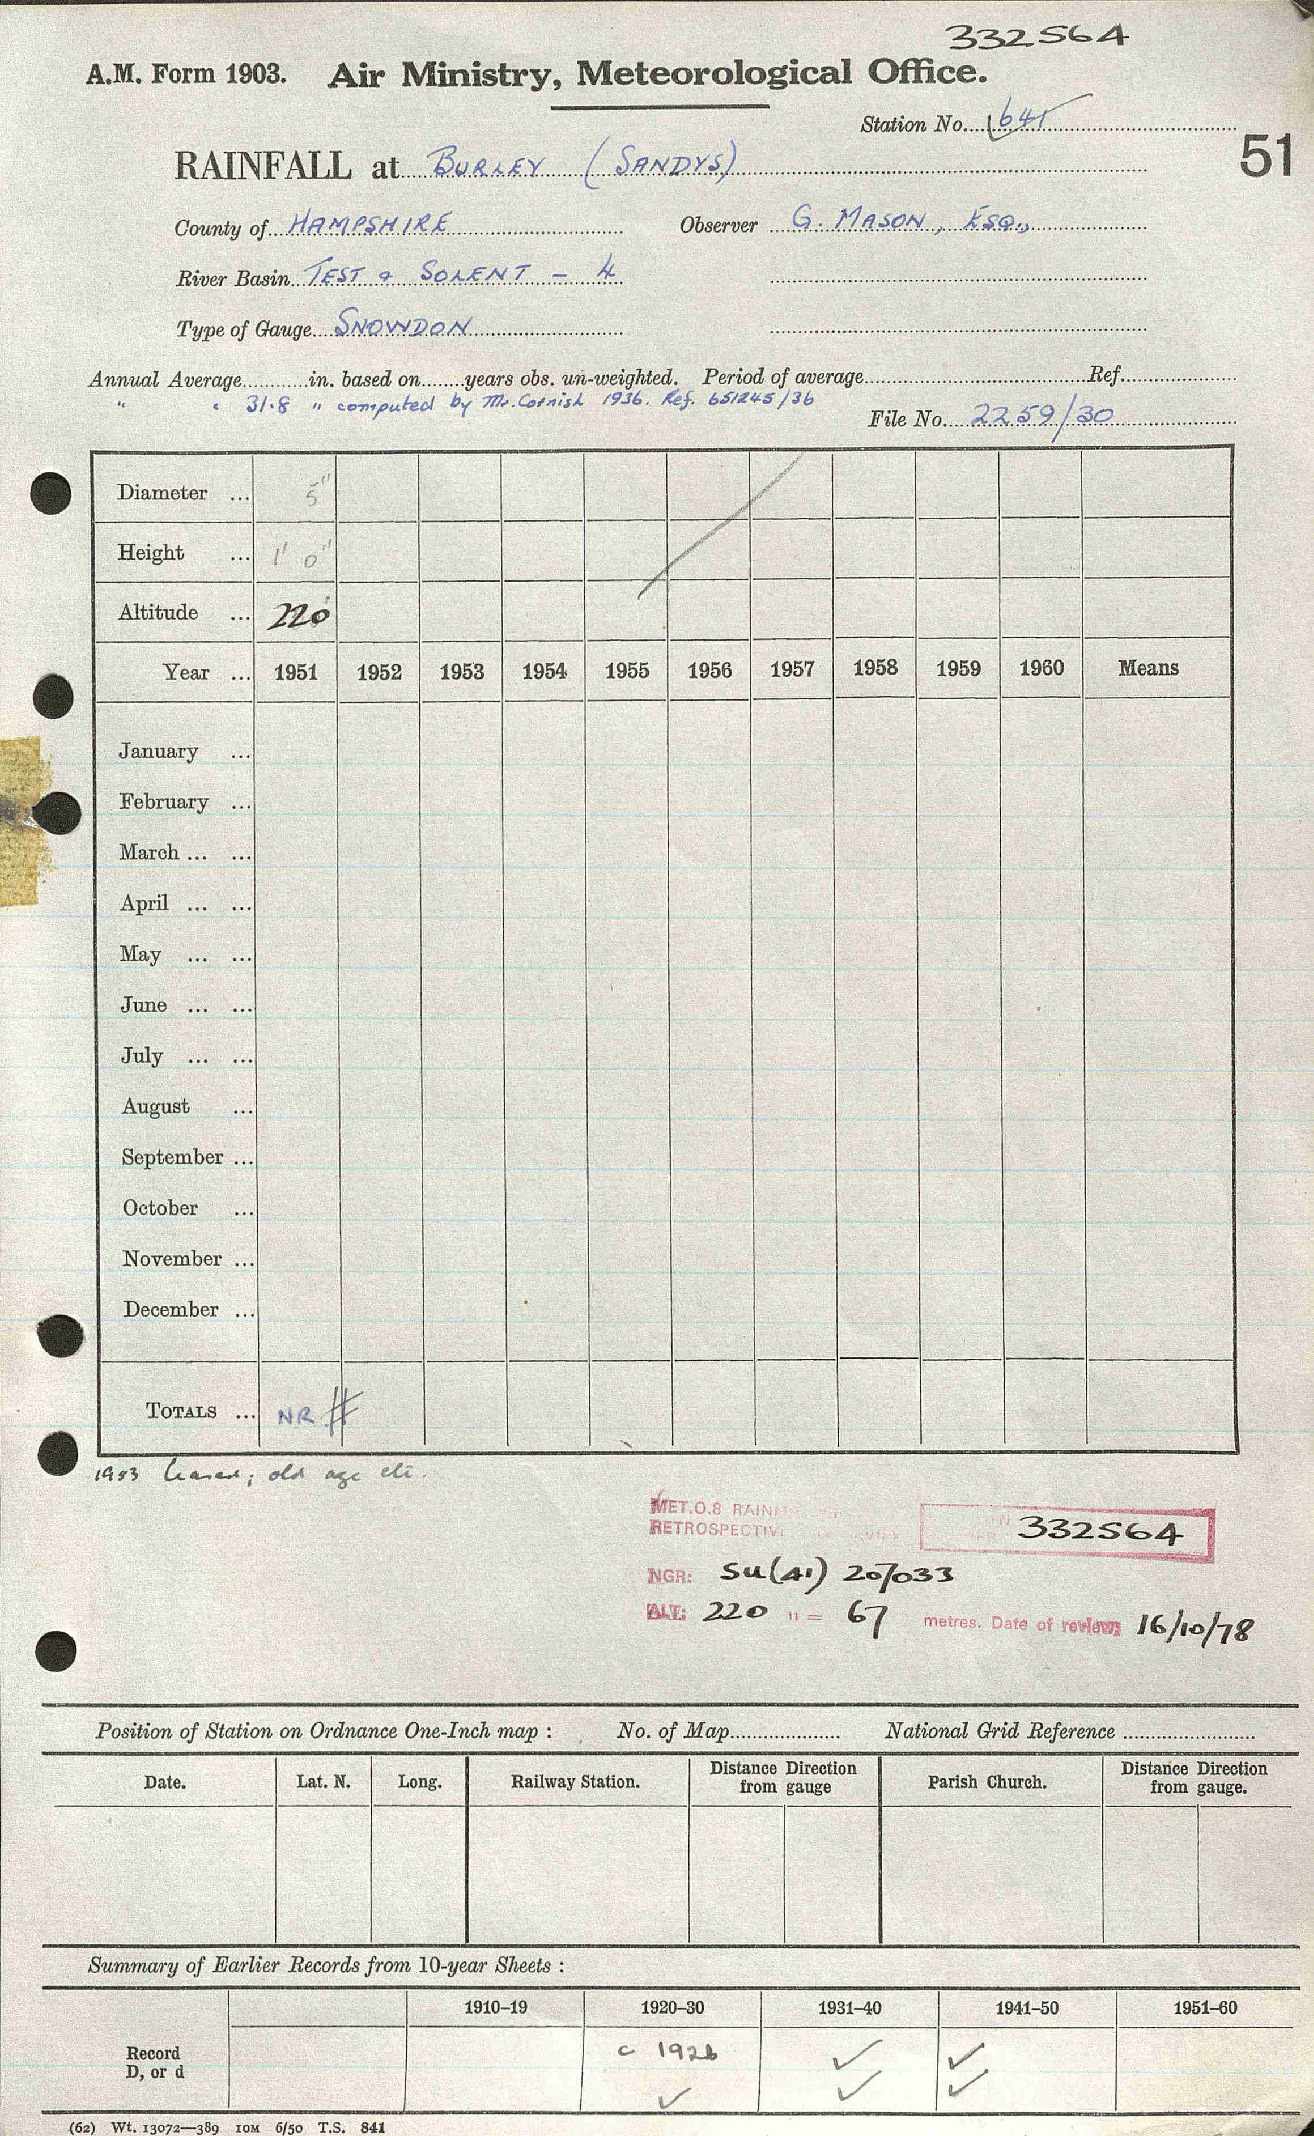 332564
A.M. Form 1903. Air Ministry, Meteorological Office.
Station No. 1641
51
RAINFALL at BURLEY (SANDYS)
County of HAMPSHIRE Observer G. MASON, ESQ.,
River Basin TEST & SOLENT - 4
Type of Gauge SNOWDON
Annual Average in. based on years obs. un-weighted. Period of average Ref.
" " 31.8 " computed by Mr. Cornish 1936. Ref. 651245/36
File No. 2259/30
Diameter ... 5"
Height ... 1' 0"
Altitude ... 220'
Year ... 1951 1952 1953 1954 1955 1956 1957 1958 1959 1960 Means
January ...
February ...
March ... ...
April ... ...
May ... ...
June ... ...
July ... ...
August ...
September ...
October ...
November ...
December ...
TOTALS ... NR
1953 ceased; old age etc.
MET.O.8 RAIN
RETROSPECTIV 332564
NGR: SU(41) 207033
ALT: 220 " = 67 metres. Date of review: 16/10/78
Position of Station on Ordnance One-Inch map : No. of Map National Grid Reference
Date. Lat. N. Long. Railway Station. Distance Direction from gauge Parish Church. Distance Direction from gauge.
Summary of Earlier Records from 10-year Sheets :
1910-19 1920-30 1931-40 1941-50 1951-60
Record c 1926 ✓ ✓
D, or d ✓ ✓ ✓
(62) Wt. 13072—389 10M 6/50 T.S. 841